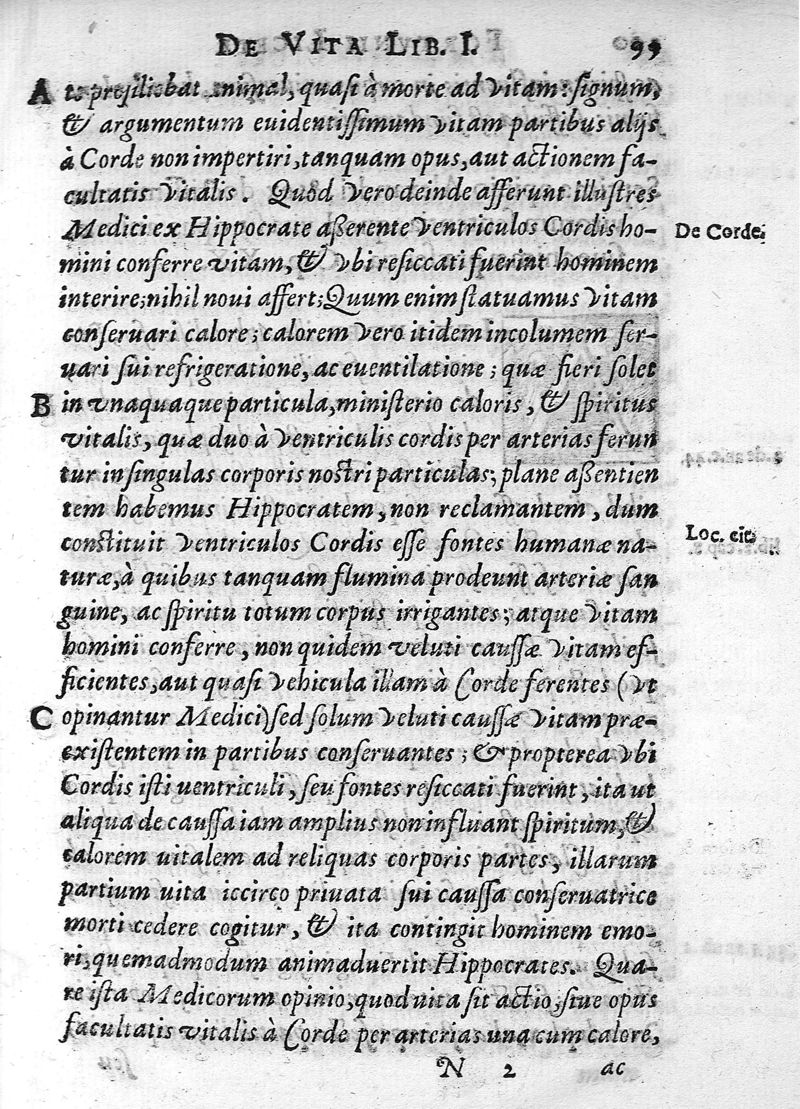 DE VITA LIB. I. 99
A te prosiliebat animal, quasi à morte ad vitam: signum,
& argumentum euidentissimum vitam partibus alijs
à Corde non impertiri, tanquam opus, aut actionem fa-
cultatis vitalis. Quòd vero deinde afferunt illustres
Medici ex Hippocrate aßerente ventriculos Cordis ho-
mini conferre vitam, & vbi resiccati fuerint hominem
interire; nihil noui affert; Quum enim statuamus vitam
conseruari calore; calorem vero itidem incolumem ser-
uari sui refrigeratione, ac euentilatione; quæ fieri solet
B in vnaquaque particula, ministerio caloris, & spiritus
vitalis, quæ duo à ventriculis cordis per arterias ferun
tur in singulas corporis nostri particulas; plane aßentien
tem habemus Hippocratem, non reclamantem, dum
constituit ventriculos Cordis esse fontes humanæ na-
turæ, à quibus tanquam flumina prodeunt arteriæ san
guine, ac spiritu totum corpus irrigantes; atque vitam
homini conferre, non quidem veluti caussæ vitam ef-
ficientes, aut quasi vehicula illam à Corde ferentes (vt
C opinantur Medici) sed solum veluti caussæ vitam præ-
existentem in partibus conseruantes; & propterea vbi
Cordis isti uentriculi, seu fontes resiccati fuerint, ita ut
aliqua de caussa iam amplius non influant spiritum, &
calorem uitalem ad reliquas corporis partes, illarum
partium uita iccirco priuata sui caussa conseruatrice
morti cedere cogitur, & ita contingit hominem emo-
ri, quemadmodum animaduertit Hippocrates. Qua-
re ista Medicorum opinio, quod uita sit actio, siue opus
facultatis vitalis à Corde per arterias una cum calore,
N 2 ac
De Corde.
Loc. cit.